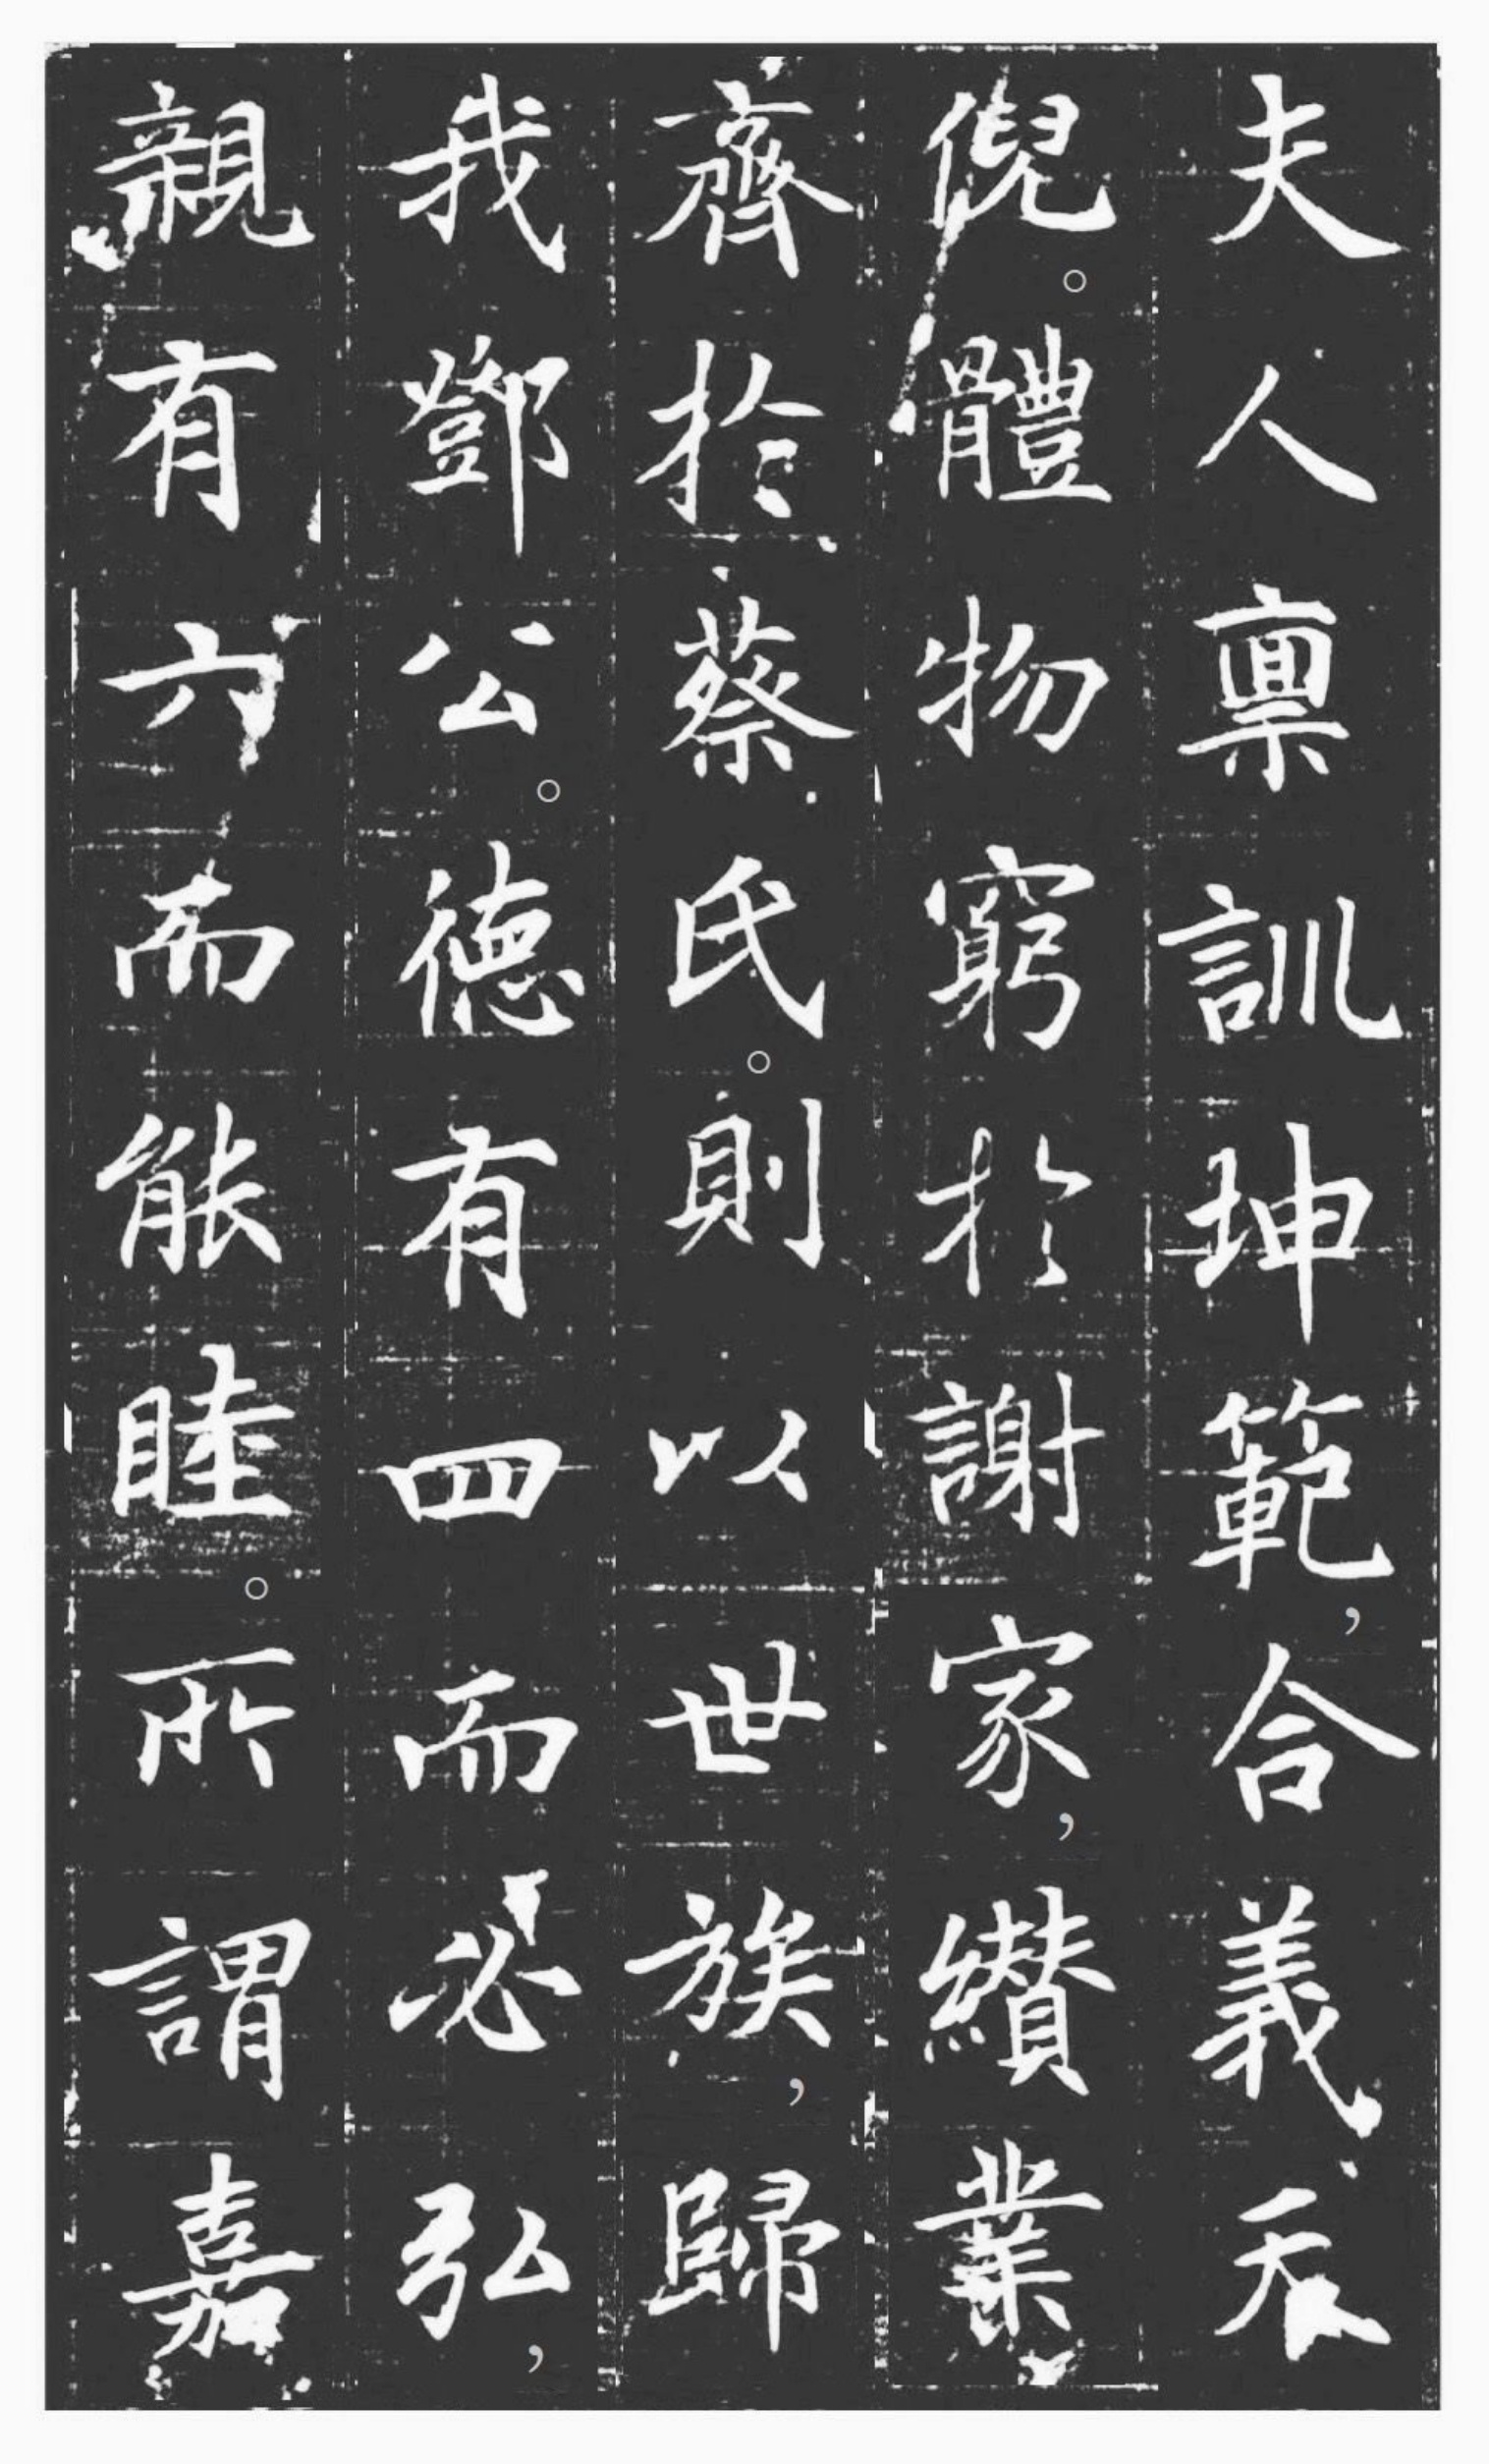 夫人禀訓坤範，合義天
倪。體物窮於謝家，纘業
齊於蔡氏。則以世族，歸
我鄧公。德有四而必弘，
親有六而能睦。所謂嘉